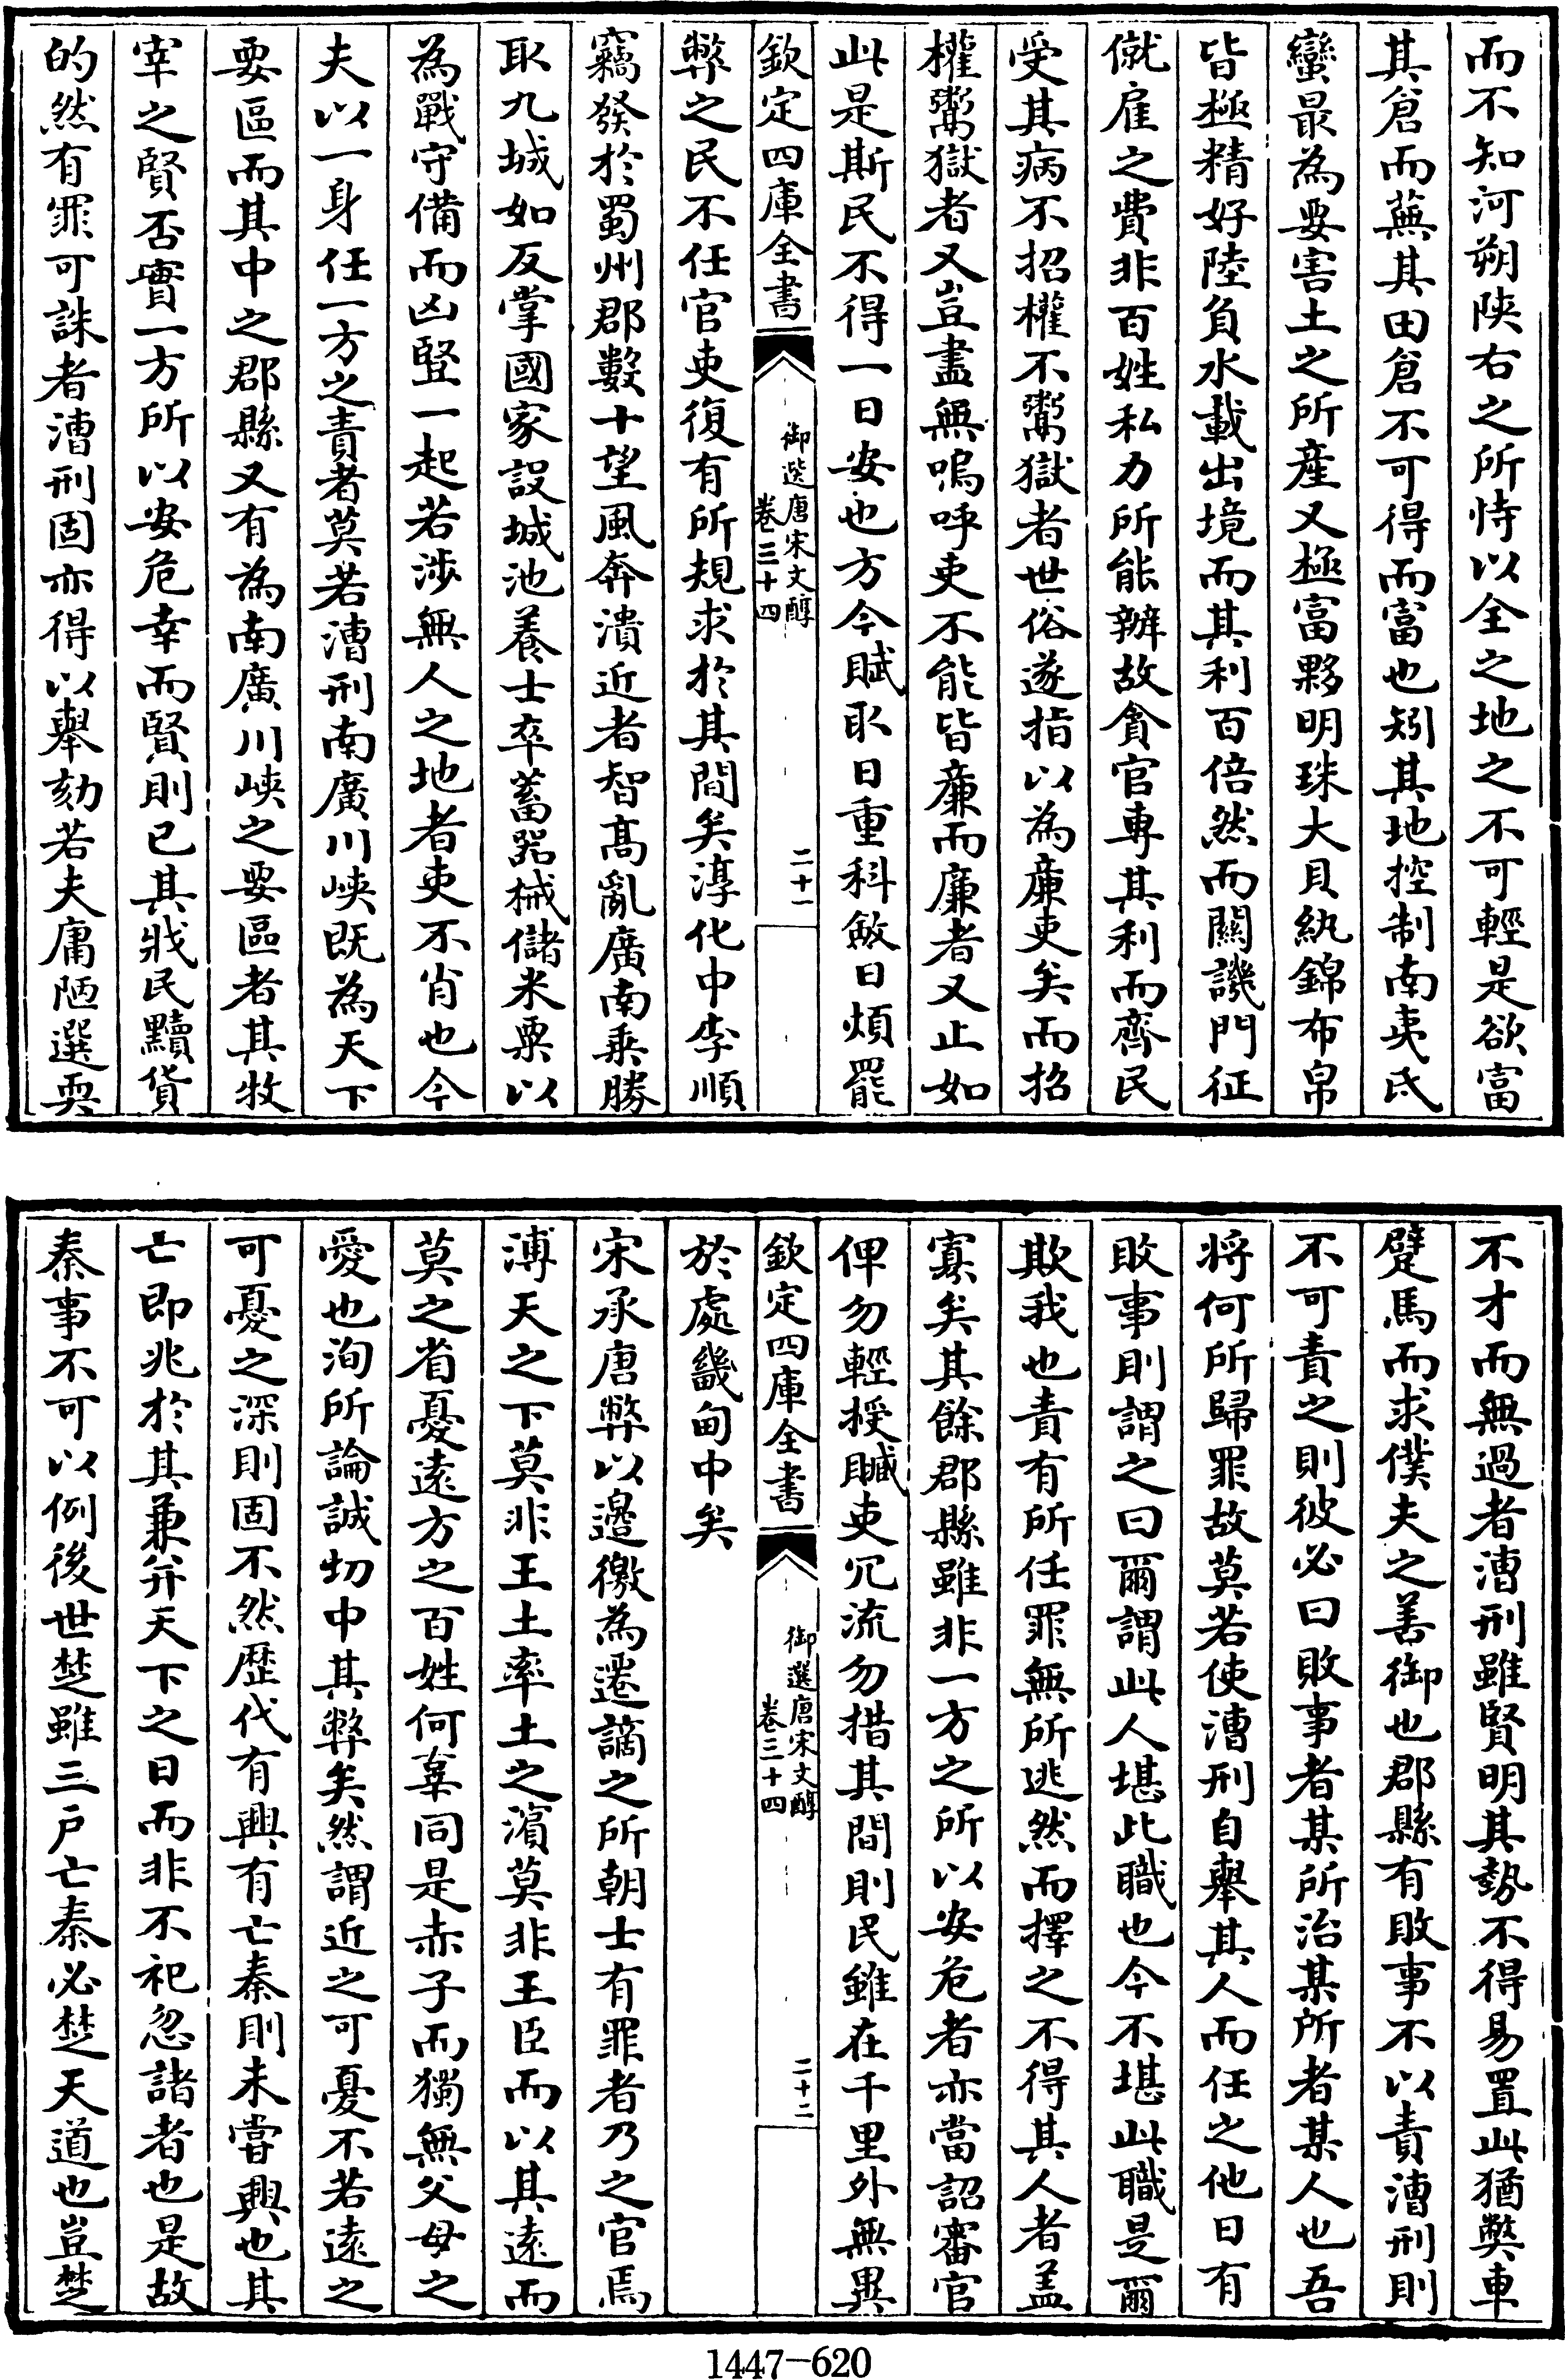 而不知河朔陝右之所恃以全之地之不可輕是欲富
其倉而蕪其田倉不可得而富也矧其地控制南夷氐
蠻最為要害土之所產又極富夥明珠大貝紈錦布帛
皆極精好陸負水載出境而其利百倍然而關譏門征
僦雇之費非百姓私力所能辦故貪官專其利而齊民
受其病不招權不鬻獄者世俗遂指以為廉吏矣而招
權鬻獄者又豈盡無嗚呼吏不能皆廉而廉者又止如
此是斯民不得一日安也方今賦取日重科斂日煩罷
欽定四庫全書
御選唐宋文醇
卷三十四
二十一
弊之民不任官吏復有所規求於其間矣淳化中李順
竊發於蜀州郡數十望風奔潰近者智高亂廣南乘勝
取九城如反掌國家設城池養士卒蓄器械儲米粟以
為戰守備而凶豎一起若涉無人之地者吏不肖也今
夫以一身任一方之責者莫若漕刑南廣川峽既為天下
要區而其中之郡縣又有為南廣川峽之要區者其牧
宰之賢否實一方所以安危幸而賢則已其戕民黷貨
的然有罪可誅者漕刑固亦得以舉劾若夫庸陋選耎
不才而無過者漕刑雖賢明其勢不得易置此猶獘車
躄馬而求僕夫之善御也郡縣有敗事不以責漕刑則
不可責之則彼必曰敗事者某所治某所者某人也吾
將何所歸罪故莫若使漕刑自舉其人而任之他日有
敗事則謂之曰爾謂此人堪此職也今不堪此職是爾
欺我也責有所任罪無所逃然而擇之不得其人者盖
寡矣其餘郡縣雖非一方之所以安危者亦當詔審官
俾勿輕授贓吏冗流勿措其間則民雖在千里外無異
欽定四庫全書
御選唐宋文醇
卷三十四
二十二
於處畿甸中矣
宋承唐弊以邊徼為遷謫之所朝士有罪者乃之官焉
溥天之下莫非王土率土之濱莫非王臣而以其遠而
莫之省憂遠方之百姓何辜同是赤子而獨無父母之
愛也洵所論誠切中其弊矣然謂近之可憂不若遠之
可憂之深則固不然歷代有興有亡秦則未嘗興也其
亡即兆於其兼并天下之日而非不祀忽諸者也是故
秦事不可以例後世楚雖三戶亡秦必楚天道也豈楚
1447-620